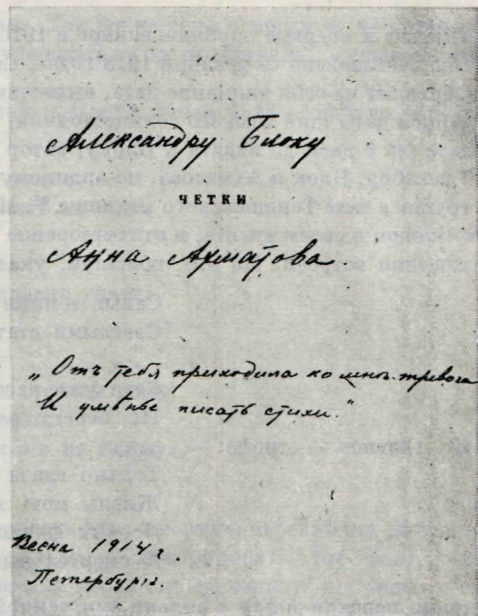 Александру Блоку
ЧЕТКИ
Анна Ахматова
„Отъ тебя приходила ко мнѣ тревога
И умѣнье писать стихи."
Весна 1914 г.
Петербургъ.